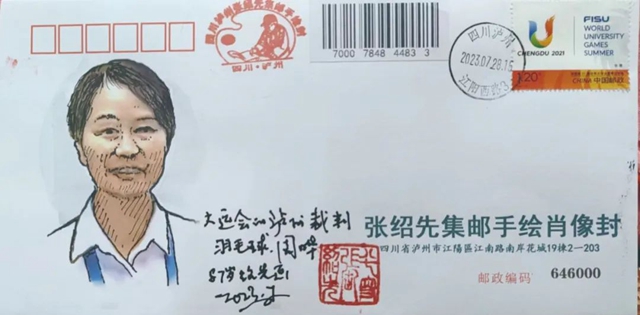 四川·泸州
7000 7844 4483 3
四川泸州
2023.07.28.15
江阳西路3
CHENGDU 2021
FISU
WORLD
UNIVERSITY
GAMES
SUMMER
CHINA 中国邮政
大运会的泸州裁判
羽毛球 周晔
87岁绍先画
2023.7
张绍先集邮手绘肖像封
四川省泸州市江陽區江南路南岸花城19棟2—203
邮政编码 646000